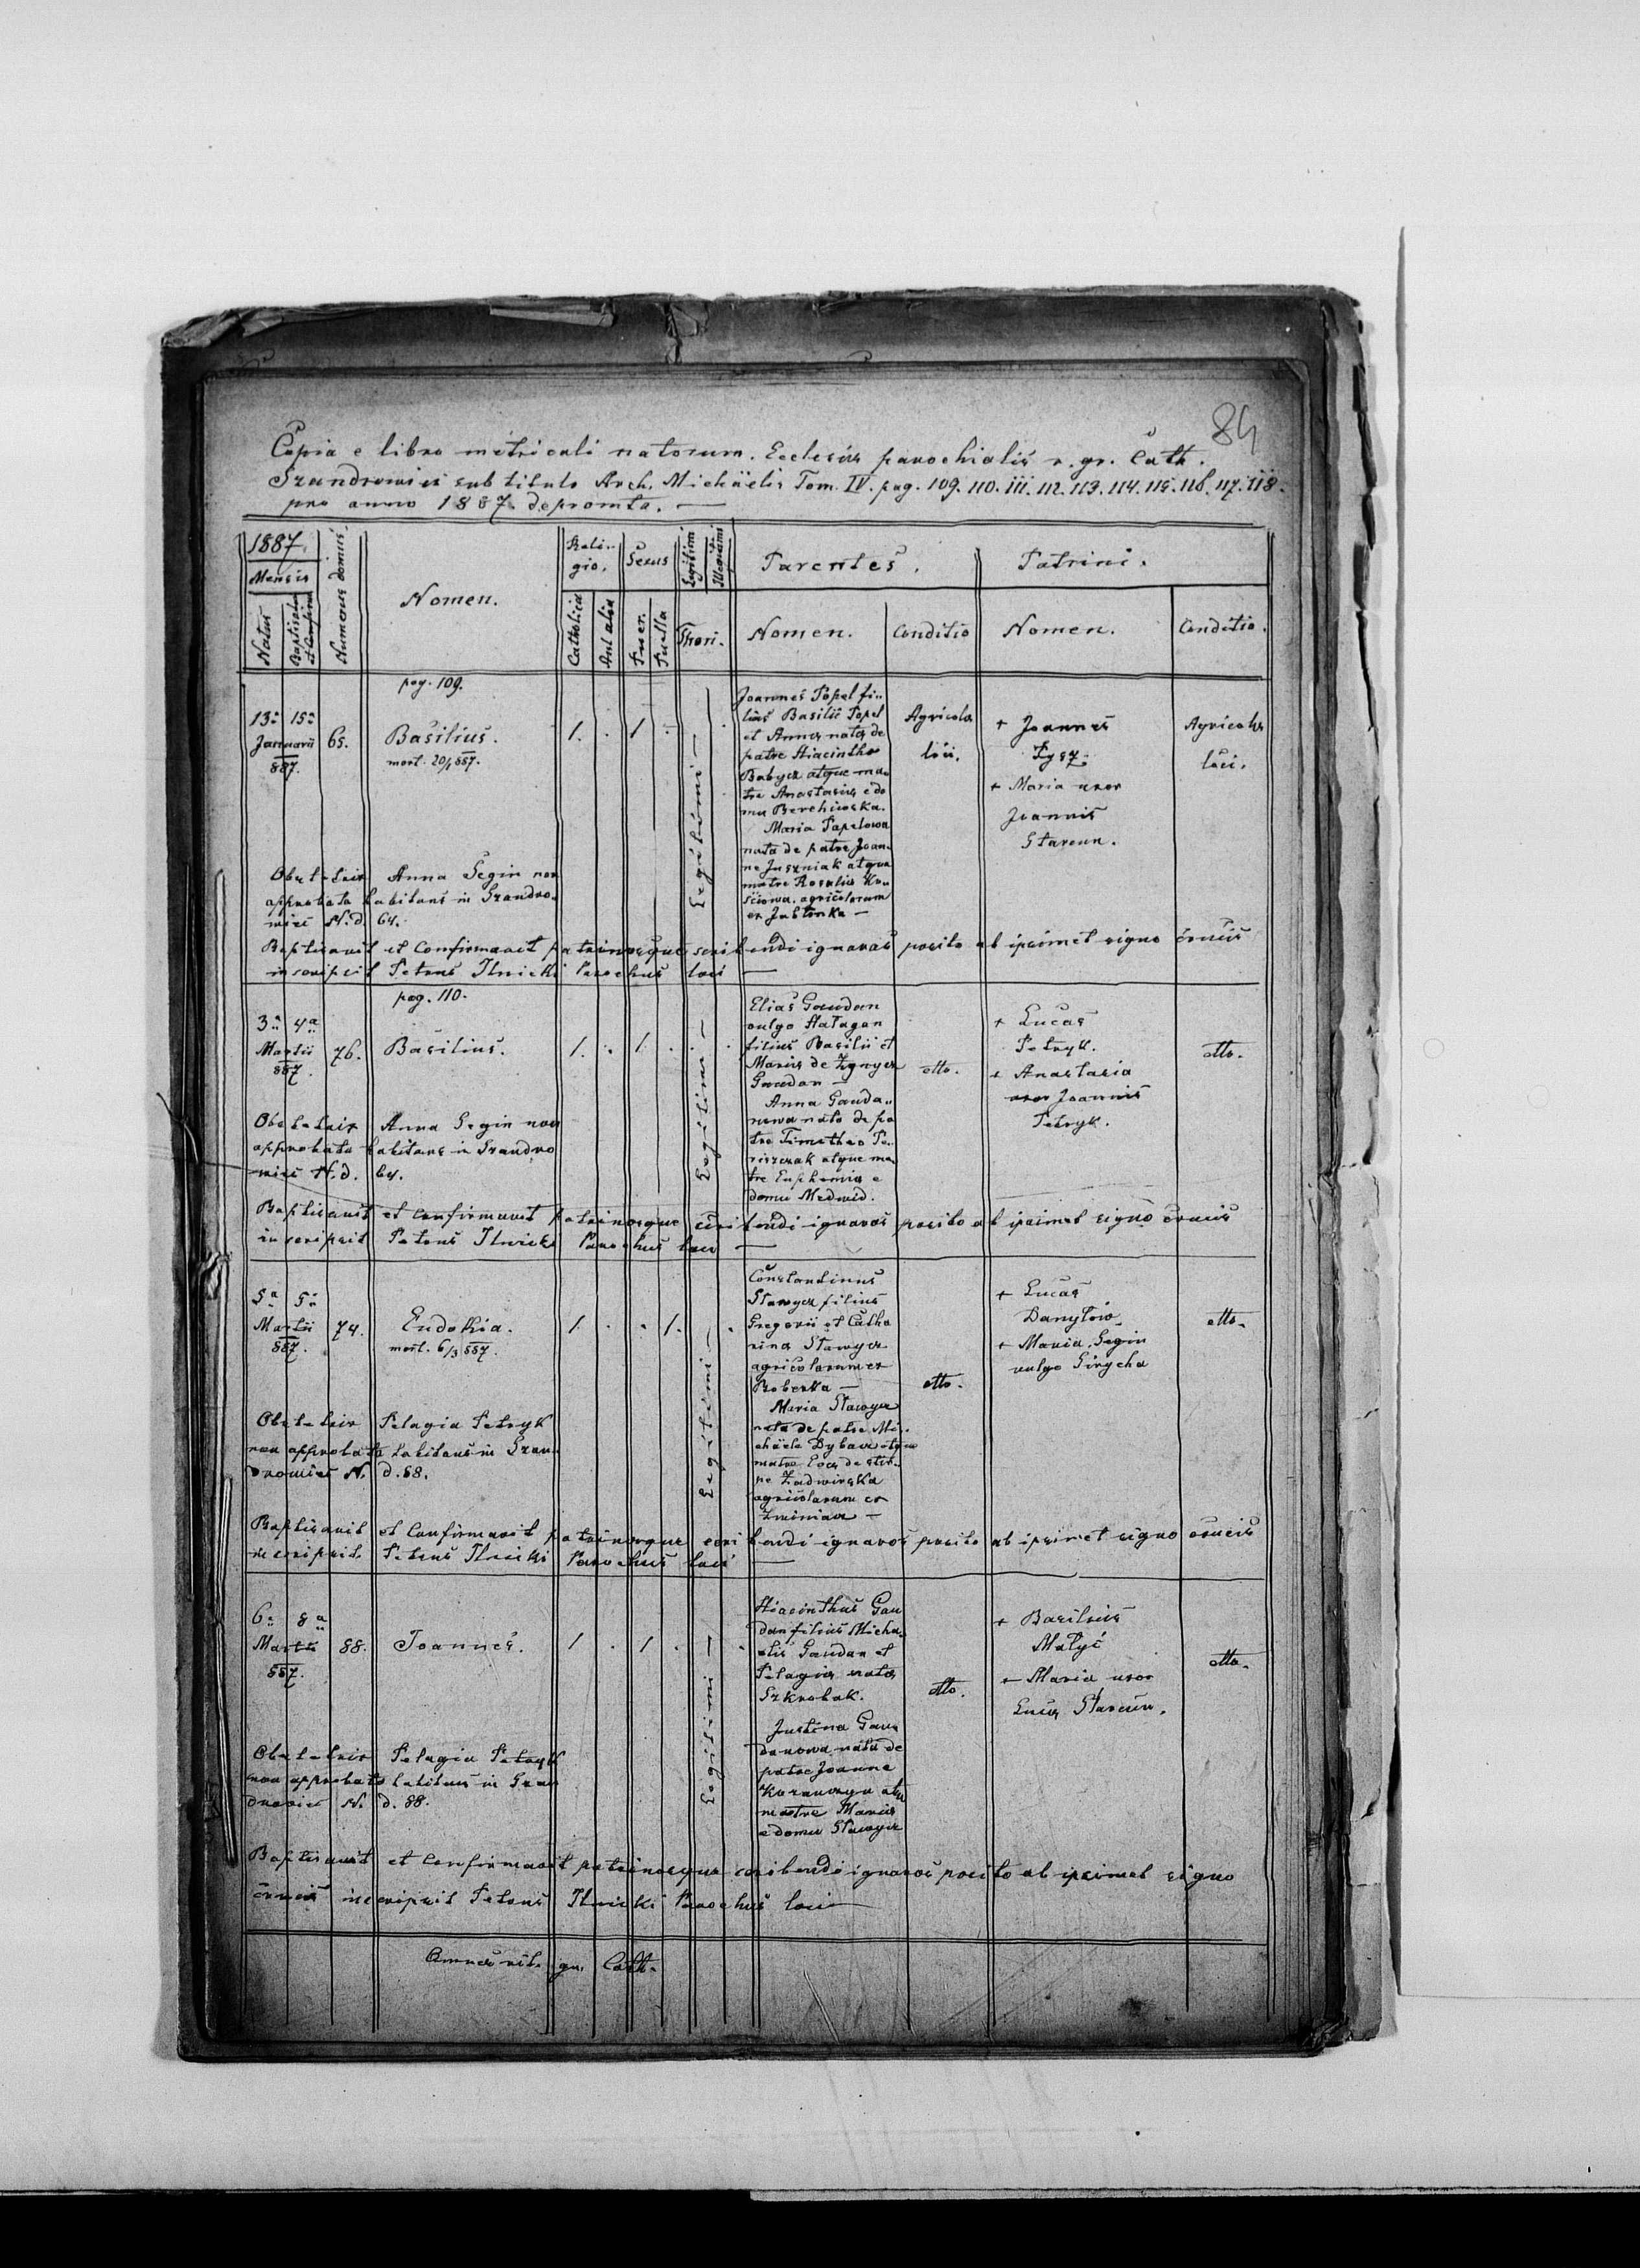 84
Copia e libro metricali natorum. Ecclesiæ parochialis r. gr. Cath.
Szandrowici sub titulo Arch. Michäelis Tom. IV. pag. 109. 110. 111. 112. 113. 114. 115. 116. 117. 118.
pro anno 1887. depromta. —
1887.
Mensis
Natus
Baptisatus et Confirm.
Numerus domus
Nomen.
Religio.
Catholica
Aut alia
Sexus
Puer.
Puella
Legitimi
Illegitimi
Thori.
Parentes.
Nomen.
Conditio
Patrini.
Nomen.
Conditio.
pag. 109.
13a 15a
Januarii
887.
65.
Basilius.
mort. 20/1 887.
1. . 1 . .
Legitimi —
Joannes Popel fi-
lius Basilii Popel
et Anna nata de
patre Hiacintho
Babycz atque ma-
tre Anastasia e do
mu Berehiwska.
Maria Popelowa
nata de patre Joan-
ne Juszniak atque
matre Rosalia Ko-
sciowa. agricolarum
ex Jablonka —
Agricola
loci.
+ Joannes
Tysz.
+ Maria uxor
Joannis
Starcun.
Agricola
loci.
Obstetrix Anna Segin non
approbata habitans in Szandro-
wici N. d. 64.
Baptisavit et Confirmavit patrinosque scribendi ignaros posito ab ipsimet signo crucis
inscripsit Petrus Ilnicki Parochus loci —
pag. 110.
3a 4a
Martii
887.
76.
Basilius.
1. . 1 . .
Legitimi —
Elias Gaudan
vulgo Hatagan
filius Basilii et
Maria de Zynycz
Gaudan —
Anna Gauda-
nowa nata de pa
tre Timotheo Pe-
riszczak atque ma-
tre Euphemia e
domu Medwid.
dtto.
+ Lucas
Petryk.
+ Anastasia
uxor Joannis
Petryk.
dtto.
Obstetrix Anna Segin non
approbata habitans in Szandro
wici N. d. 64.
Baptisavit et Confirmavit patrinosque scribendi ignaros posito ab ipsimet signo crucis
inscripsit Petrus Ilnicki Parochus loci —
5a 5a
Martii
887.
74.
Eudokia.
mort. 6/3 887.
1. . . 1. .
Legitimi —
Constantinus
Stawycz filius
Gregorii et Catha
rina Stawycz
agricolarum ex
Boberka —
Maria Stawycz
nata de patre Mi-
chäele Dybacz atque
matre Eva de stir-
pe Zadwirska
agricolarum ex
—
dtto.
+ Lucas
Danylow
+ Maria Segin
vulgo Girycha
dtto.
Obstetrix Pelagia Petryk
non approbata habitans in Szan-
drowici N. d. 88.
Baptisavit et Confirmavit patrinosque scribendi ignaros posito ab ipsimet signo crucis
inscripsit Petrus Ilnicki Parochus loci —
6a 8a
Martii
887.
88.
Joannes.
1 . 1 . .
Legitimi —
Hiacinthus Gau
dan filius Micha-
elis Gaudan et
Pelagia nata
Szkrobak.
Justina Gau-
danowa nata de
patre Joanne
atq
matre Maria
e domu Stawycz
dtto.
+ Basilius
Matyś
+ Maria uxor
Luca Starcun.
dtto.
Obstetrix Pelagia Petryk
non approbata habitans in Szan
drowici N. d. 88.
Baptisavit et Confirmavit patrinosque scribendi ignaros posito ab ipsimet signo
crucis inscripsit Petrus Ilnicki Parochus loci —
Omnes rit. gr. Cath.